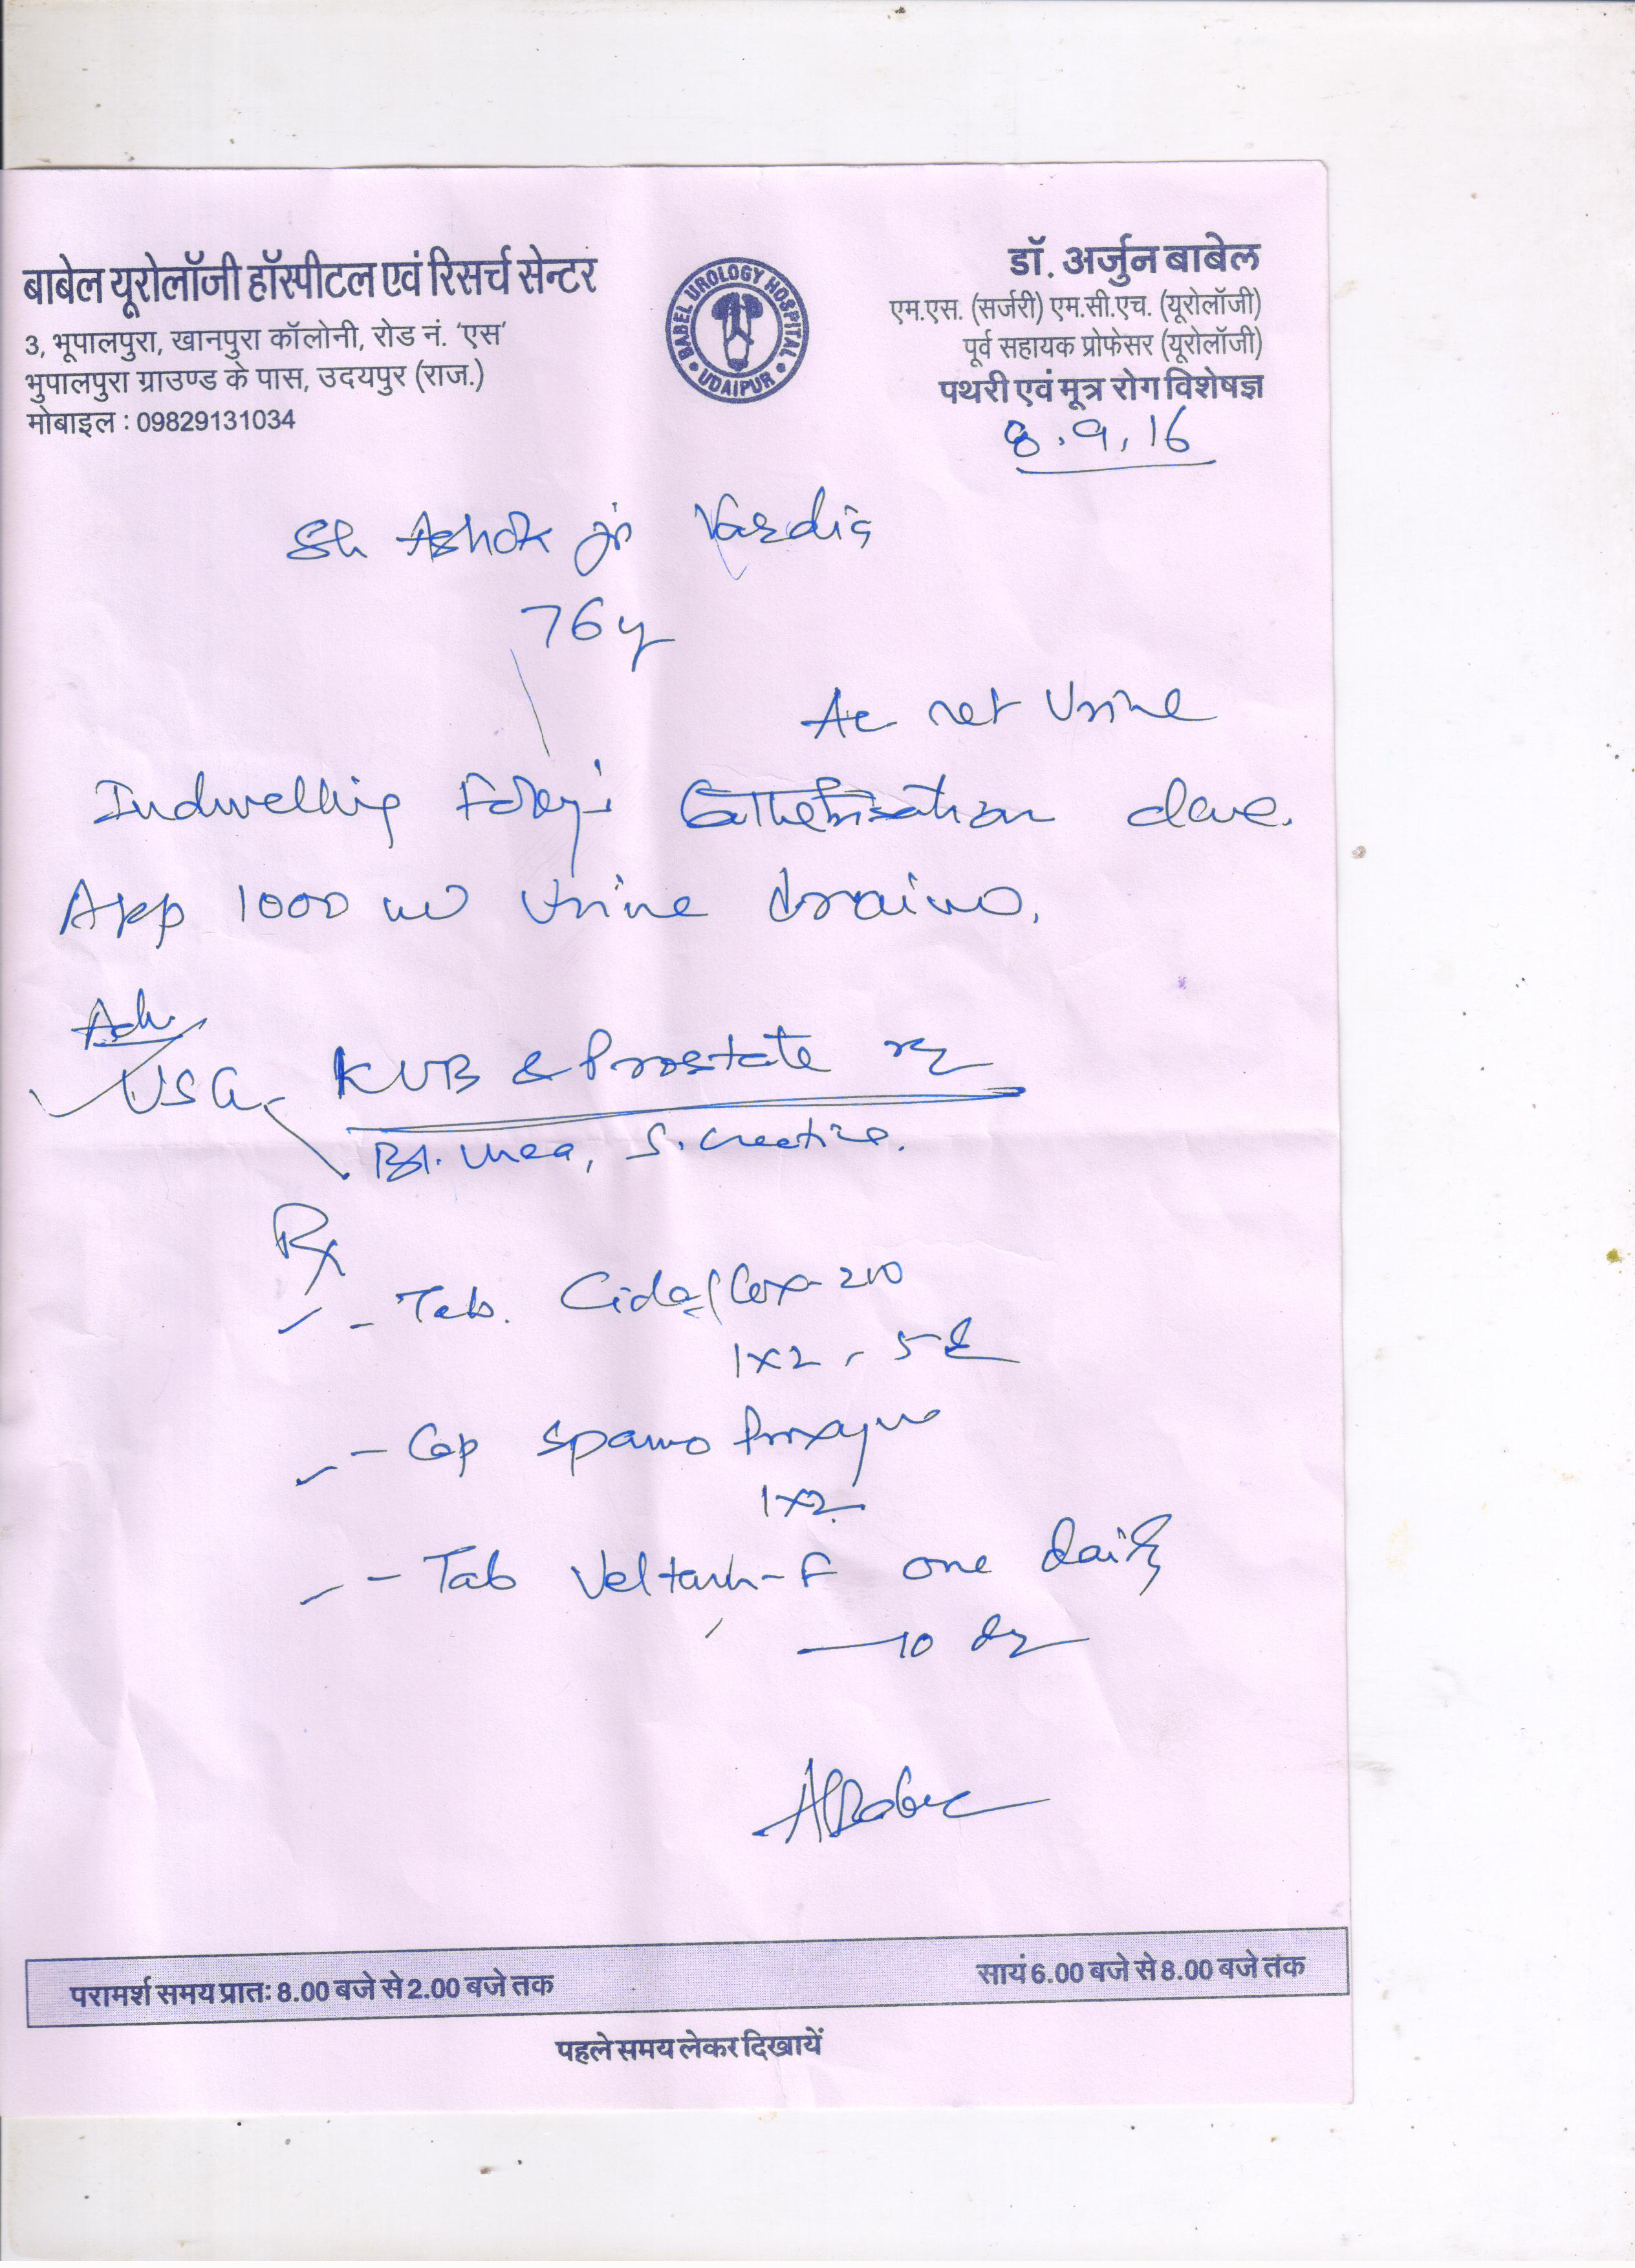 बाबेल यूरोलॉजी हॉस्पीटल एवं रिसर्च सेन्टर
3, भूपालपुरा, खानपुरा कॉलोनी, रोड नं. 'एस'
भुपालपुरा ग्राउण्ड के पास, उदयपुर (राज.)
मोबाइल : 09829131034
BABEL UROLOGY HOSPITAL
• UDAIPUR •
डॉ. अर्जुन बाबेल
एम.एस. (सर्जरी) एम.सी.एच. (यूरोलॉजी)
पूर्व सहायक प्रोफेसर (यूरोलॉजी)
पथरी एवं मूत्र रोग विशेषज्ञ
8.9.16
Sh Ashok ji Vardia
76y
Ac ret Urine
Indwelling Foley's Catheterisation done.
App 1000 ml Urine drained.
Adv.
USG - KUB & Prostate
Bl. Urea, S. Creatine.
Rx
- Tab. 200
1x2 - 5 d
- Cap Spasmo Proxyvon
1x2
- Tab Veltam-F one daily
— 10 dy
ABabel
परामर्श समय प्रातः 8.00 बजे से 2.00 बजे तक
सायं 6.00 बजे से 8.00 बजे तक
पहले समय लेकर दिखायें